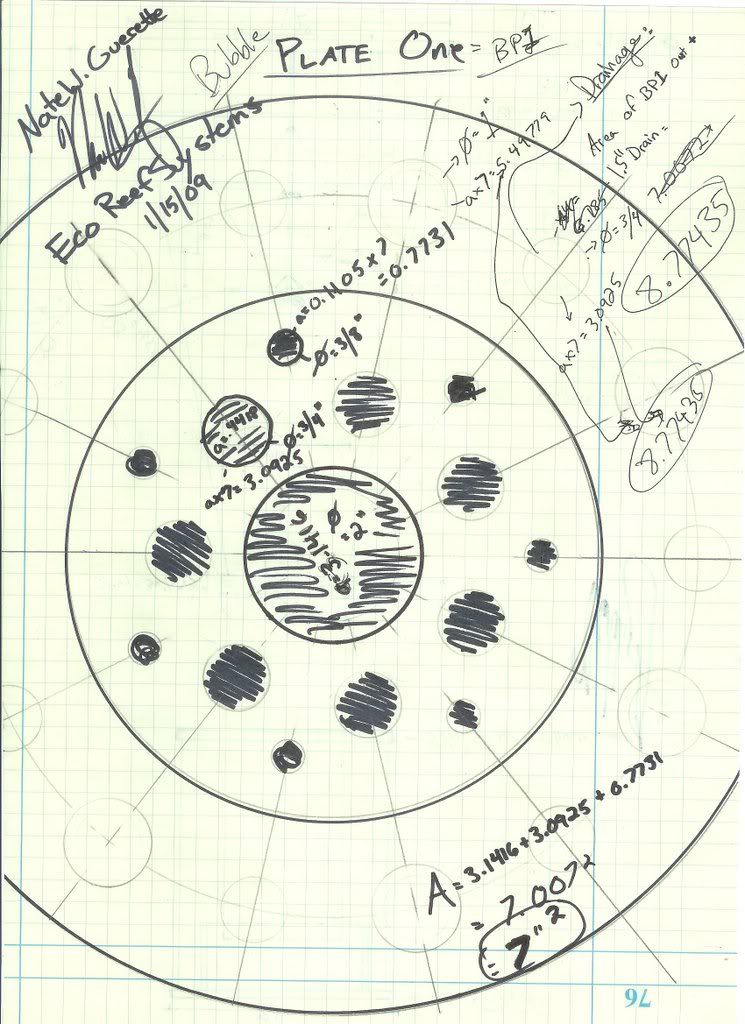 Nate W. Guerette
Eco Reef Systems
1/15/09
Bubble
PLATE One = BP1
Drainage:
Area of BP1 out +
1.5" Drain =
7.0072+
8.77435
→ Ø = 1"
ax7 = 5.49779
→ Ø = 3/4
ax7 = 3.0925
8.77435
a = 0.1105 x 7
= 0.7731
Ø = 3/8"
a = .4418
Ø = 3/4"
ax7 = 3.0925
Ø
= 2"
a = 3.1416
A = 3.1416 + 3.0925 + 0.7731
= 7.0072
= 7"²
76